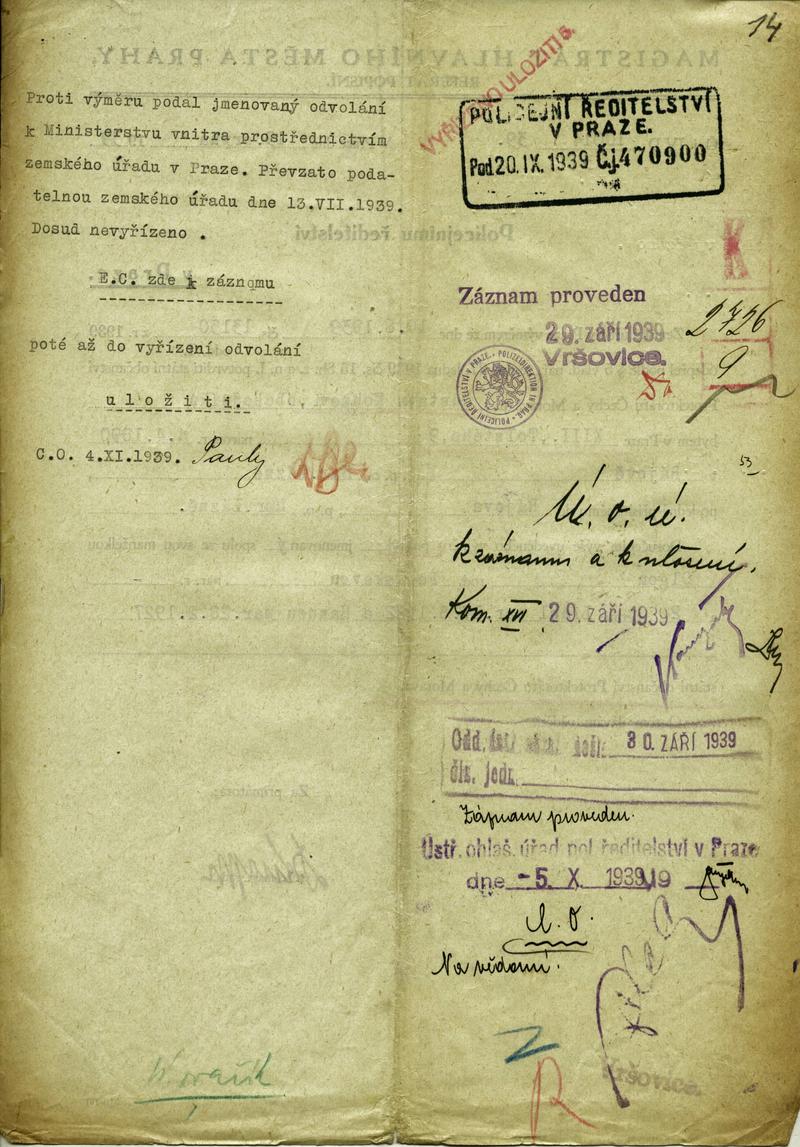 14
Proti výměru podal jmenovaný odvolání
k Ministerstvu vnitra prostřednictvím
zemského úřadu v Praze. Převzato poda-
telnou zemského úřadu dne 13.VII.1939.
Dosud nevyřízeno .
E.C. zde k záznamu
poté až do vyřízení odvolání
u l o ž i t i.
C.O. 4.XI.1939. Pauly
POLICEJNÍ ŘEDITELSTVÍ
V PRAZE.
Pod 20.IX.1939 Čj.470900
Záznam proveden
29. září 1939
Vršovice.
2726
9
POLICEJNÍ ŘEDITELSTVÍ V PRAZE • POLIZEIDIREKTION IN PRAG •
53
Ú. o. ú.
k záznamu a k uložení.
Kom. XIII 29. září 1939
Odd. 30. ZÁŘÍ 1939
čís. jedn.
Záznam proveden.
Ústř. ohlaš. úřad pol. ředitelství v Praze
dne -5. X. 1939
Na vědomí.
Z
R
Vršovice.